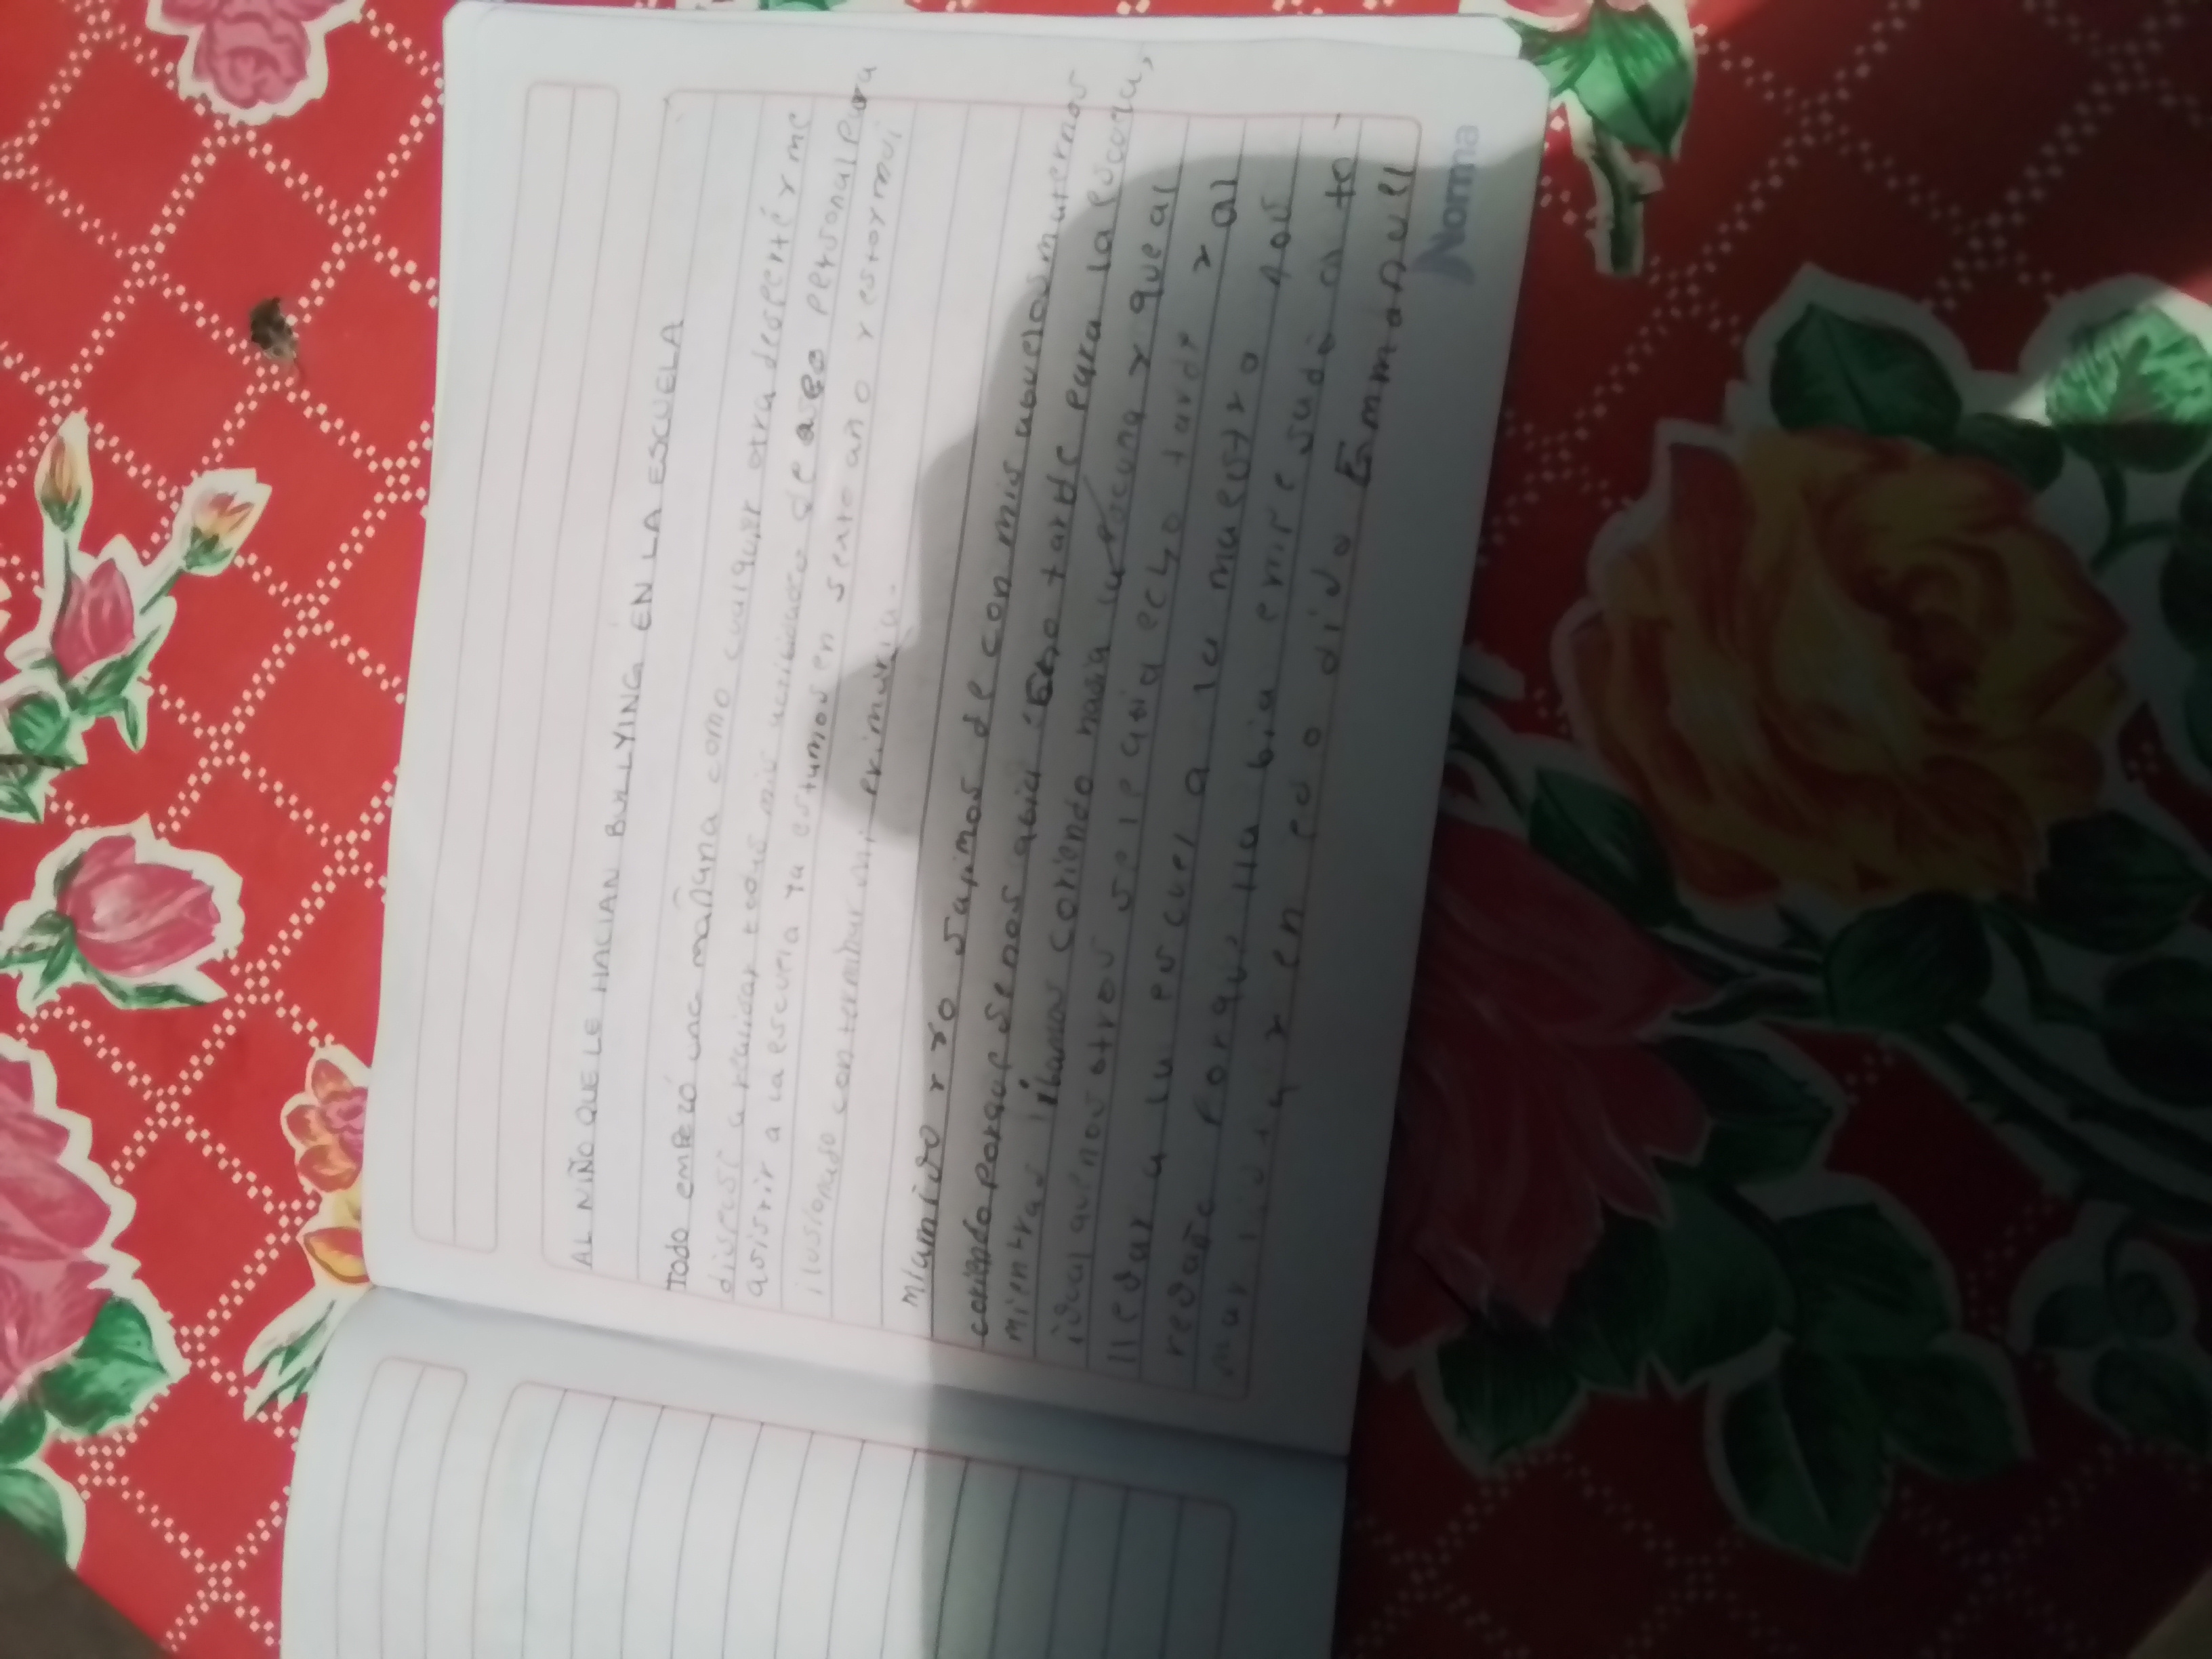 AL NIÑO QUE LE HACIAN BULLYING EN LA ESCUELA
Todo empezó una mañana como cualquier otra desperté y me
dispuse a realizar todas mis actividades de aseo personal para
asistir a la escuela ya estumos en sexto año y estoy mui
ilusionado con terminar mi primaria.
Mi amigo y yo salimos de con mis abuelos maternos
coriendo porque se nos abia echo tarde para la escuela,
mientras ibamos coriendo hacia la y que al
igual que nosotros se le abia echo tarde y al
llegar a la escuela la maestro nos
regaño porque lla bia empesado a to
mar lista y en eso dijo Emmanuel
Norma